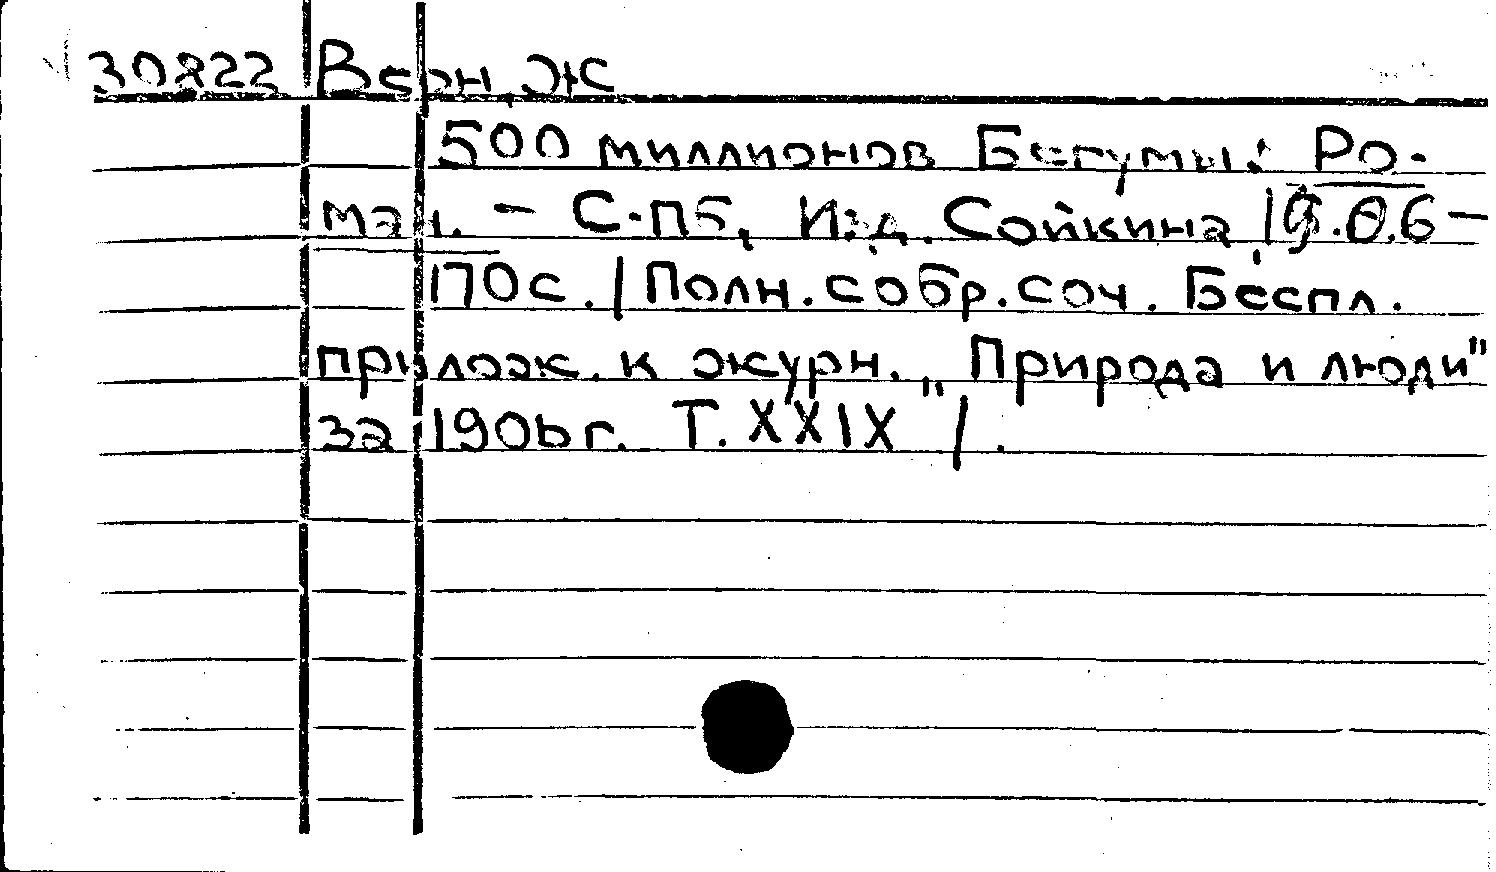 30822 Верн, Ж
500 миллионов Бегумы: Ро-
ман. — С-Пб, Изд. Сойкина, 1906 —
170с. / Полн. собр. соч. Беспл.
прилож. к журн. „Природа и люди"
за 1906г. Т. XXIX /.